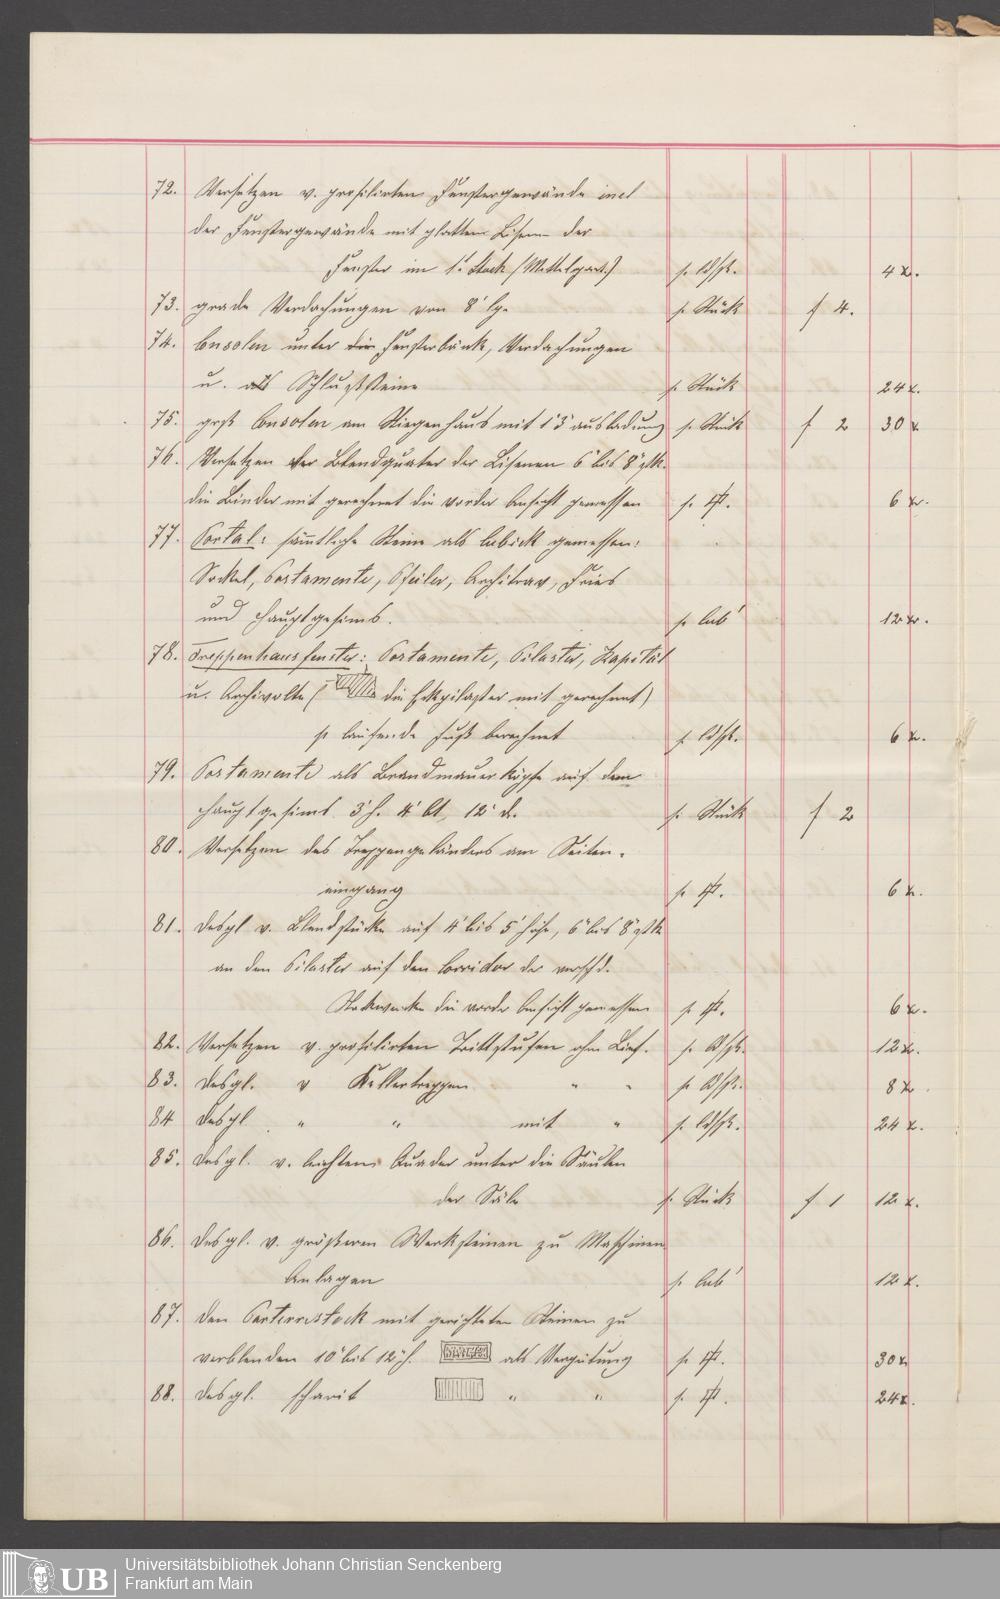 72. Versetzen v. profilirten Fenstergewände incl
der Fenstergewände mit glatten Lisenen der
Fenster im 1t. Stock (Mittelpart.) p. ldfß. 4 x.
73. grade Verdachungen von 8' lg. p. Stück f 4.
74. Consolen unter die Fensterbänk, Verdachungen
u. als Schlußsteine p. Stück 24 x.
75. grß Consolen am Stiegenhaus mit 1'3" ausladung p. Stück f 2 30 x
76. Versetzen der Blendquater der Lisenen 6" bis 8" stk.
die Binder mit gerechnet die vorder Ansicht gemessen p. □ß. 6 x.
77. Portal: sämtliche Steine als Cubick gemessen:
Sockel, Postamente, Pfeiler, Architrav, Fries
und Hauptgesims. p. Cub' 12 x.
78. Treppenhausfenster: Postamente, Pilaster, Kapitäl
u. Archivolte ( die Eckpilaster mit gerechnet)
p. laufende Fuß berechnet p. ldfß. 6 x.
79. Postamente als Brandmauer Köpfe auf dem
Hauptgesims 3' h. 4' bt, 12" d. p. Stück f 2
80. Versetzen des Treppengeländers am Seiten-
eingang p. □ß. 6 x.
81. desgl v. Blendstücke auf 4' bis 5' Höhe, 6" bis 8" stk
an den Pilaster auf den Corridor der versch.
Stockwerke die vorder Ansicht gemessen p. □ß. 6 x.
82. Versetzen v. profilirten Trittstufen ohne Lief. p. ldfß. 12 x.
83. desgl. v Kellertreppen " " p. ldfß. 8 x
84 desgl. " " mit " p. ldfß. 24 x.
85. desgl. v. leichten Quader unter die Säulen
der Säle p. Stück f 1 12 x.
86. desgl. v. größeren Werksteinen zu Maschinen
Anlagen p. Cub' 12 x.
87. den Parterrestock mit gerichteten Steinen zu
verblenden 10" bis 12" h. als Vergütung p. □ß. 30 x
88. desgl. scharit " " p. □ß. 24 x.
UB
Universitätsbibliothek Johann Christian Senckenberg
Frankfurt am Main